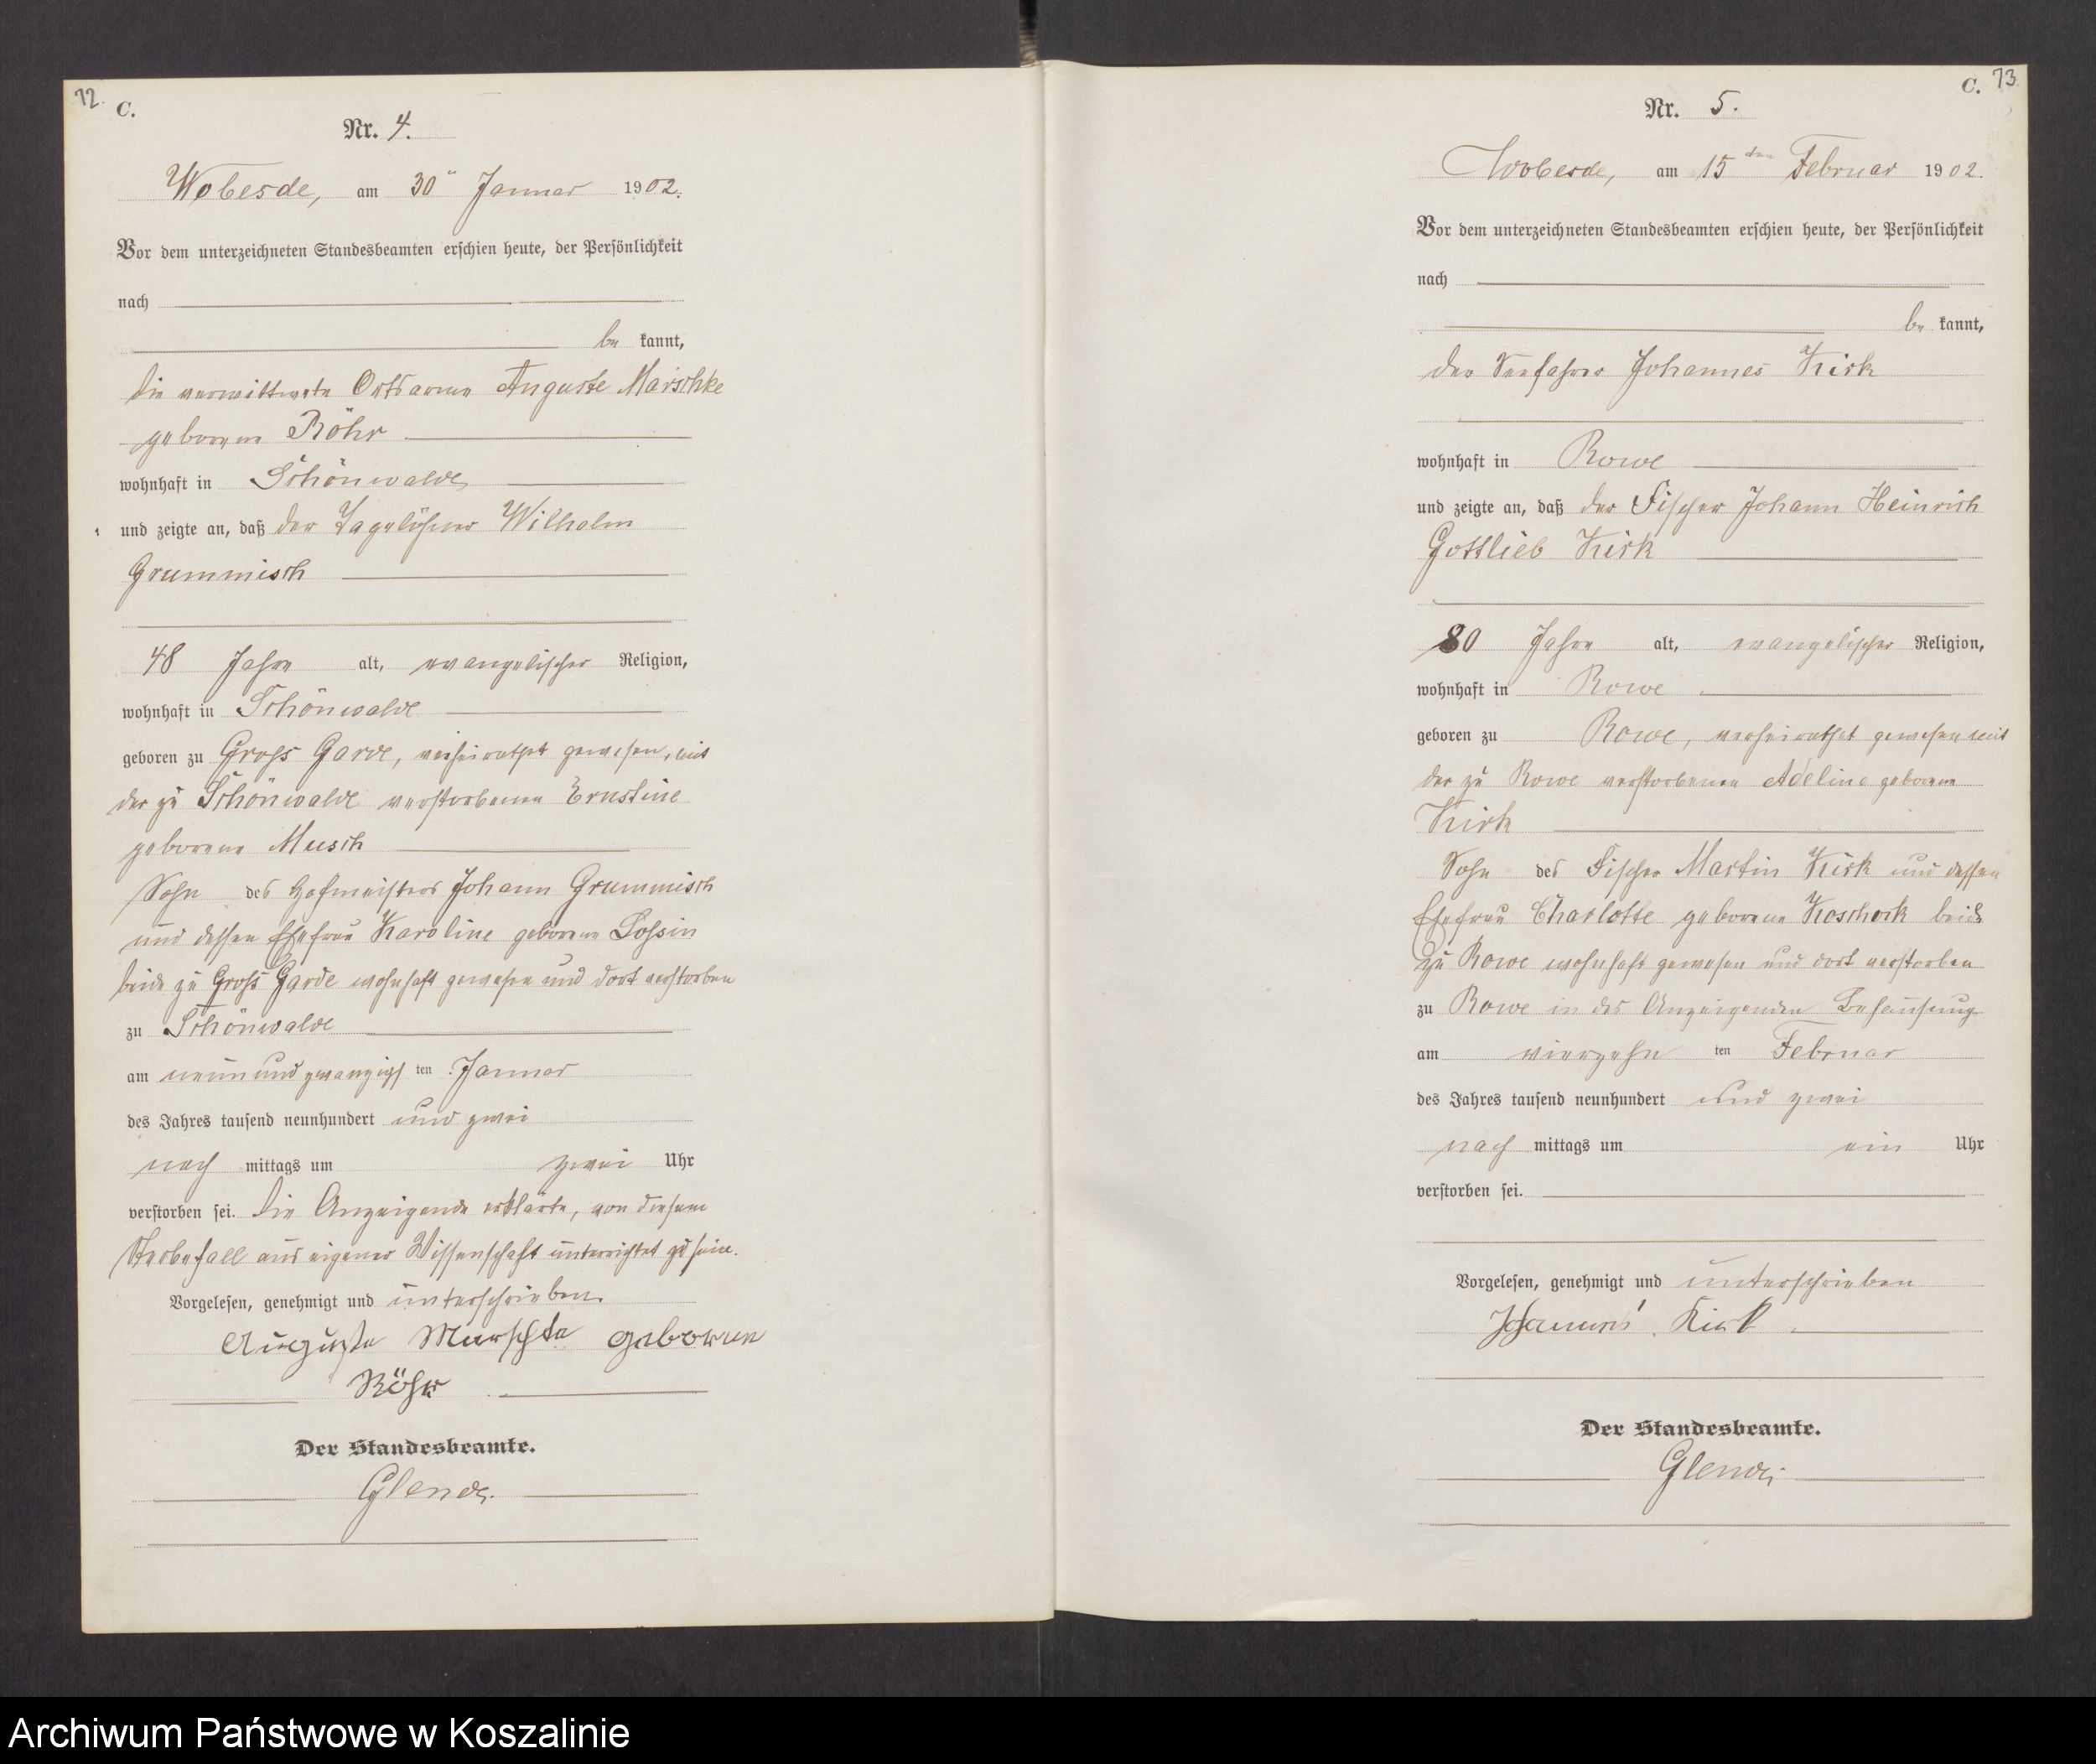 72.
C.
Nr. 4.
Wobesde, am 30ten Januar 1902.
Vor dem unterzeichneten Standesbeamten erschien heute, der Persönlichkeit
nach
be kannt,
die verwittwete Ortsarme Auguste Marschke
geborene Röhr
wohnhaft in Schönwalde
und zeigte an, daß der Tagelöhner Wilhelm
Grummisch
48 Jahre alt, evangelischer Religion,
wohnhaft in Schönwalde
geboren zu Groß Garde, verheirathet gewesen, mit
der zu Schönwalde verstorbenen Ernstine
geborene Musch
Sohn des Hofmeisters Johann Grummisch
und dessen Ehefrau Karoline geborene Lossin
beide zu Groß Garde wohnhaft gewesen und dort verstorben
zu Schönwalde
am neunundzwanzigs ten Januar
des Jahres tausend neunhundert und zwei
nach mittags um zwei Uhr
verstorben sei. Die Anzeigende erklärte, von diesem
Sterbefall aus eigener Wissenschaft unterrichtet zu sein.
Vorgelesen, genehmigt und unterschrieben.
Auguste geboren
Röhr
Der Standesbeamte.
C. 73.
Nr. 5.
Wobesde, am 15ten Februar 1902.
Vor dem unterzeichneten Standesbeamten erschien heute, der Persönlichkeit
nach
be kannt,
der Seefahrer Johannes Kirk
wohnhaft in Rowe
und zeigte an, daß der Fischer Johann Heinrich
Gottlieb Kirk
80 Jahre alt, evangelischer Religion,
wohnhaft in Rowe
geboren zu Rowe, verheirathet gewesen mit
der zu Rowe verstorbenen Adeline geborene
Kirk
Sohn des Fischer Martin Kirk und dessen
Ehefrau Charlotte geborene Koschock beide
zu Rowe wohnhaft gewesen und dort verstorben
zu Rowe in des Anzeigenden Behausung
am vierzehn ten Februar
des Jahres tausend neunhundert und zwei
nach mittags um ein Uhr
verstorben sei.
Vorgelesen, genehmigt und unterschrieben
Johannes Kirk
Der Standesbeamte.
Archiwum Państwowe w Koszalinie